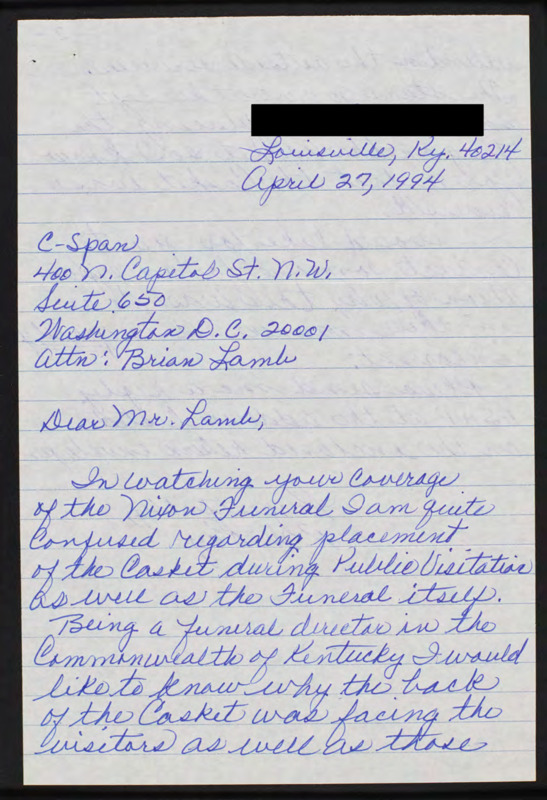 Louisville, Ky. 40214
April 27, 1994
C-Span
400 N. Capitol St. N.W.
Suite 650
Washington D.C. 20001
Attn: Brian Lamb
Dear Mr. Lamb,
In watching your Coverage
of the Nixon Funeral I am quite
Confused regarding placement
of the Casket during Public Visitation
as well as the Funeral itself.
Being a funeral director in the
Commonwealth of Kentucky I would
like to know why the back
of the Casket was facing the
visitors as well as those